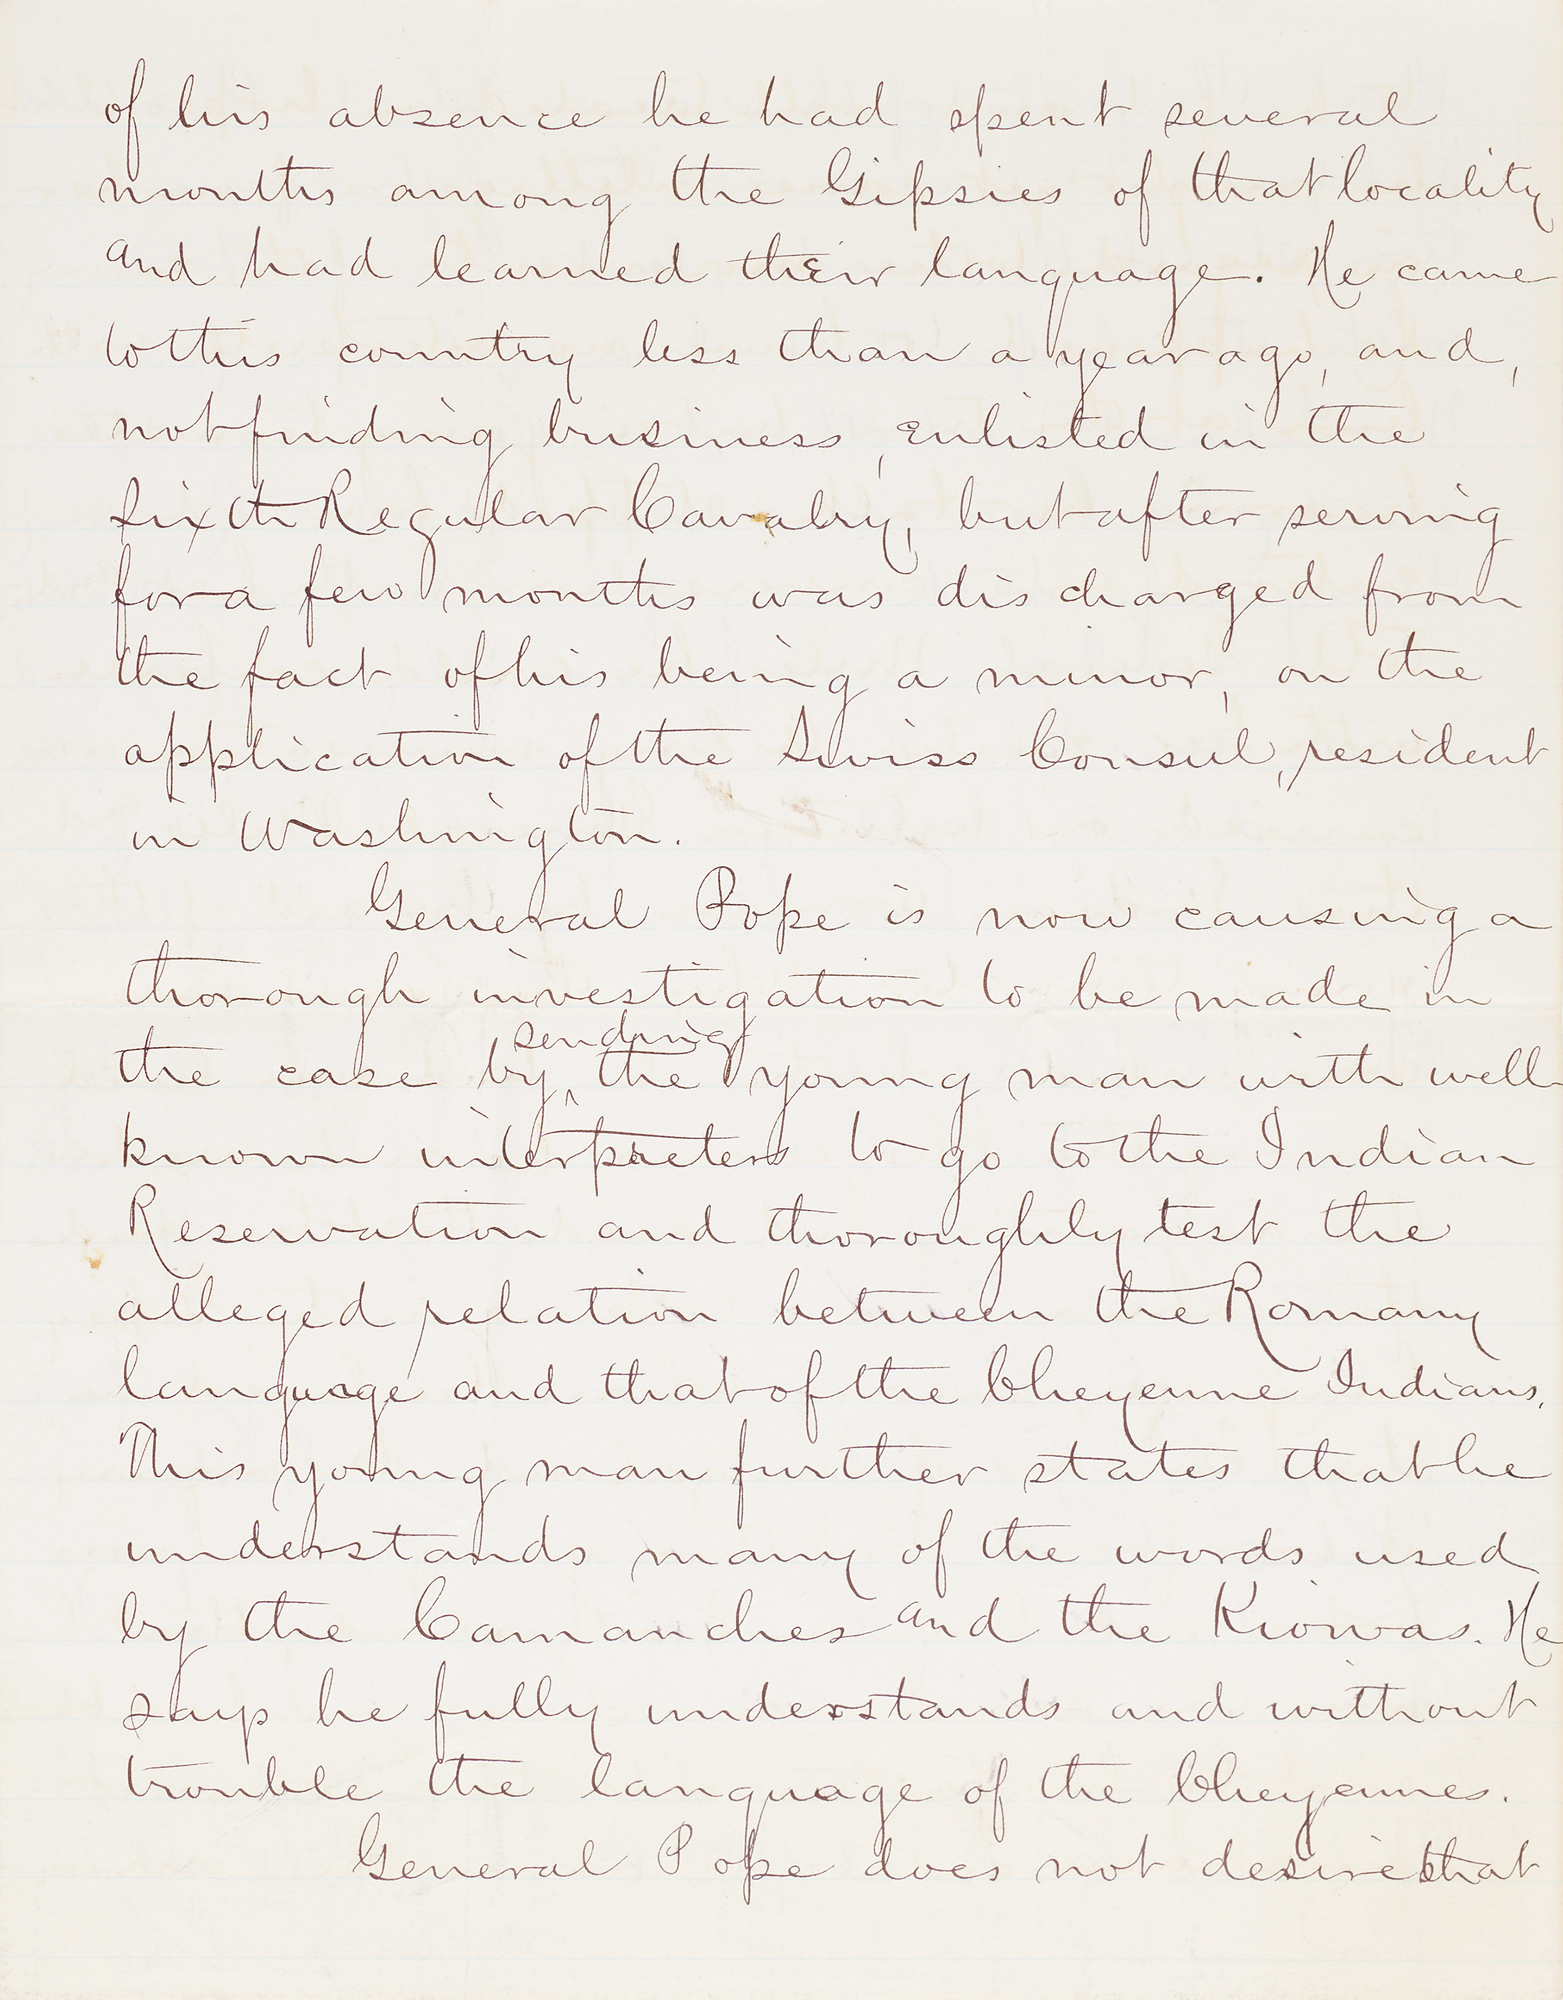 of his absence he had spent several
months among the Gipsies of that locality
and had learned their language. He came
to this country less than a year ago, and,
not finding business, enlisted in the
Sixth Regular Cavalry, but after serving
for a few months was discharged from
the fact of his being a minor, on the
application of the Swiss Consul, resident
in Washington.
General Pope is now causing a
thorough investigation to be made in
sending
the case by ‸ the young man with well
known interpreters to go to the Indian
Reservation and thoroughly test the
alleged relation between the Romany
language and that of the Cheyenne Indians.
This young man further states that he
understands many of the words used
by the Camanches and the Kiowas. He
says he fully understands and without
trouble the language of the Cheyennes.
General Pope does not desire that